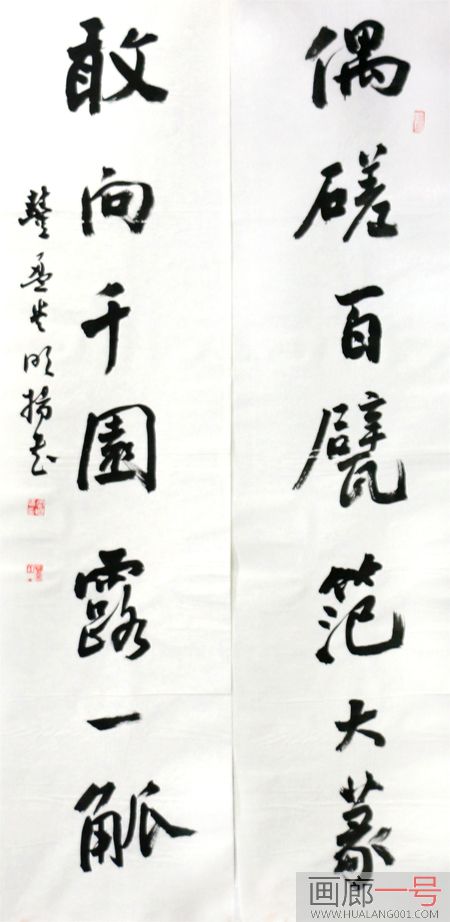 偶磋百甓笵大篆
敢向千園露一觚
明揚书
画廊一号
WWW.HUALANG001.COM